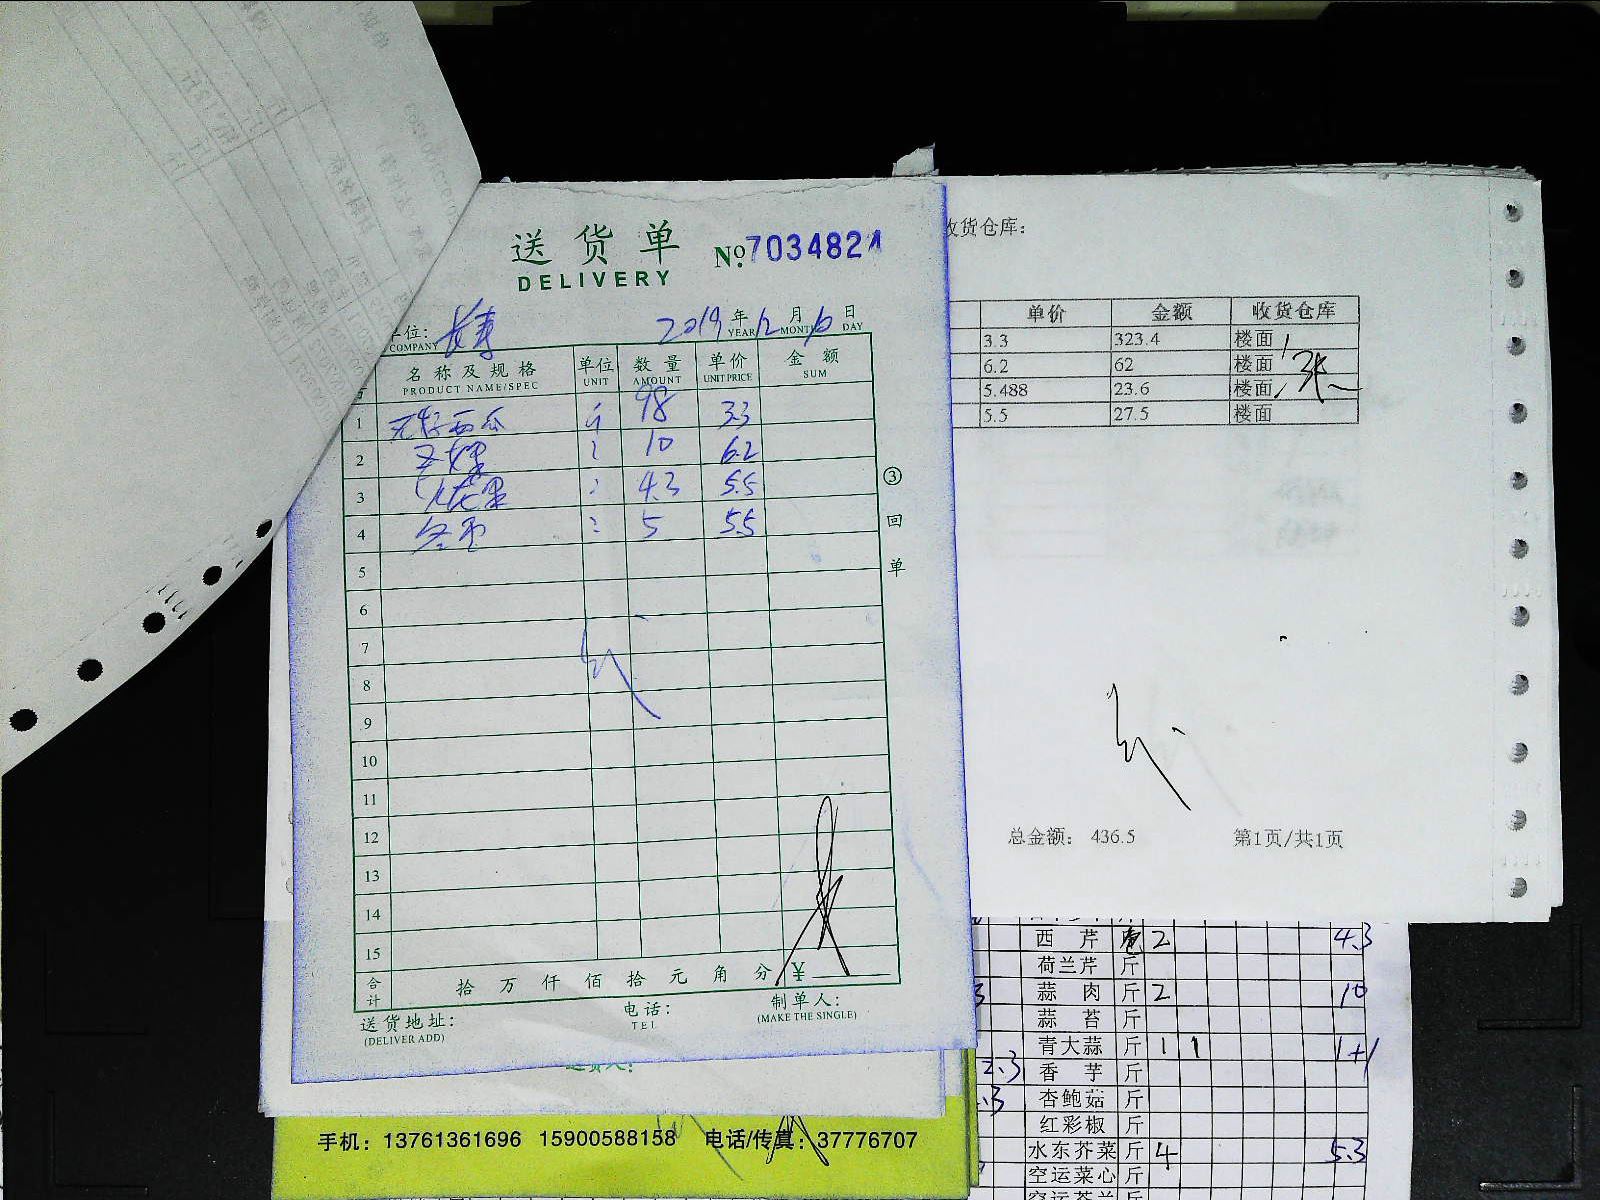 送货单 №7034821
DELIVERY
单位： 长寿 2019年12月10日
COMPANY YEAR MONTH DAY
名称及规格 单位 数量 单价 金额
PRODUCT NAME/SPEC UNIT AMOUNT UNIT PRICE SUM
1 无籽西瓜 斤 98 3.3
2 10 6.2
3 火龙果 4.3 5.5
4 冬枣 5 5.5
5
6
7
8
9
10
11
12
13
14
15
合计 拾万仟佰拾元角分 ¥
送货地址： 电话： 制单人：
(DELIVER ADD) TEL (MAKE THE SINGLE)
③回单
送货人：
手机：13761361696 15900588158 电话/传真：37776707
收货仓库：
单价 金额 收货仓库
3.3 323.4 楼面
6.2 62 楼面
5.488 23.6 楼面
5.5 27.5 楼面
总金额： 436.5 第1页/共1页
西芹 2 4.3
荷兰芹 斤
蒜肉 斤 2 10
蒜苔 斤
青大蒜 斤 1 1 1+1
2.3 香芋 斤
.3 杏鲍菇 斤
红彩椒 斤
水东芥菜 斤 4 5.3
空运菜心 斤
空运芥兰 斤